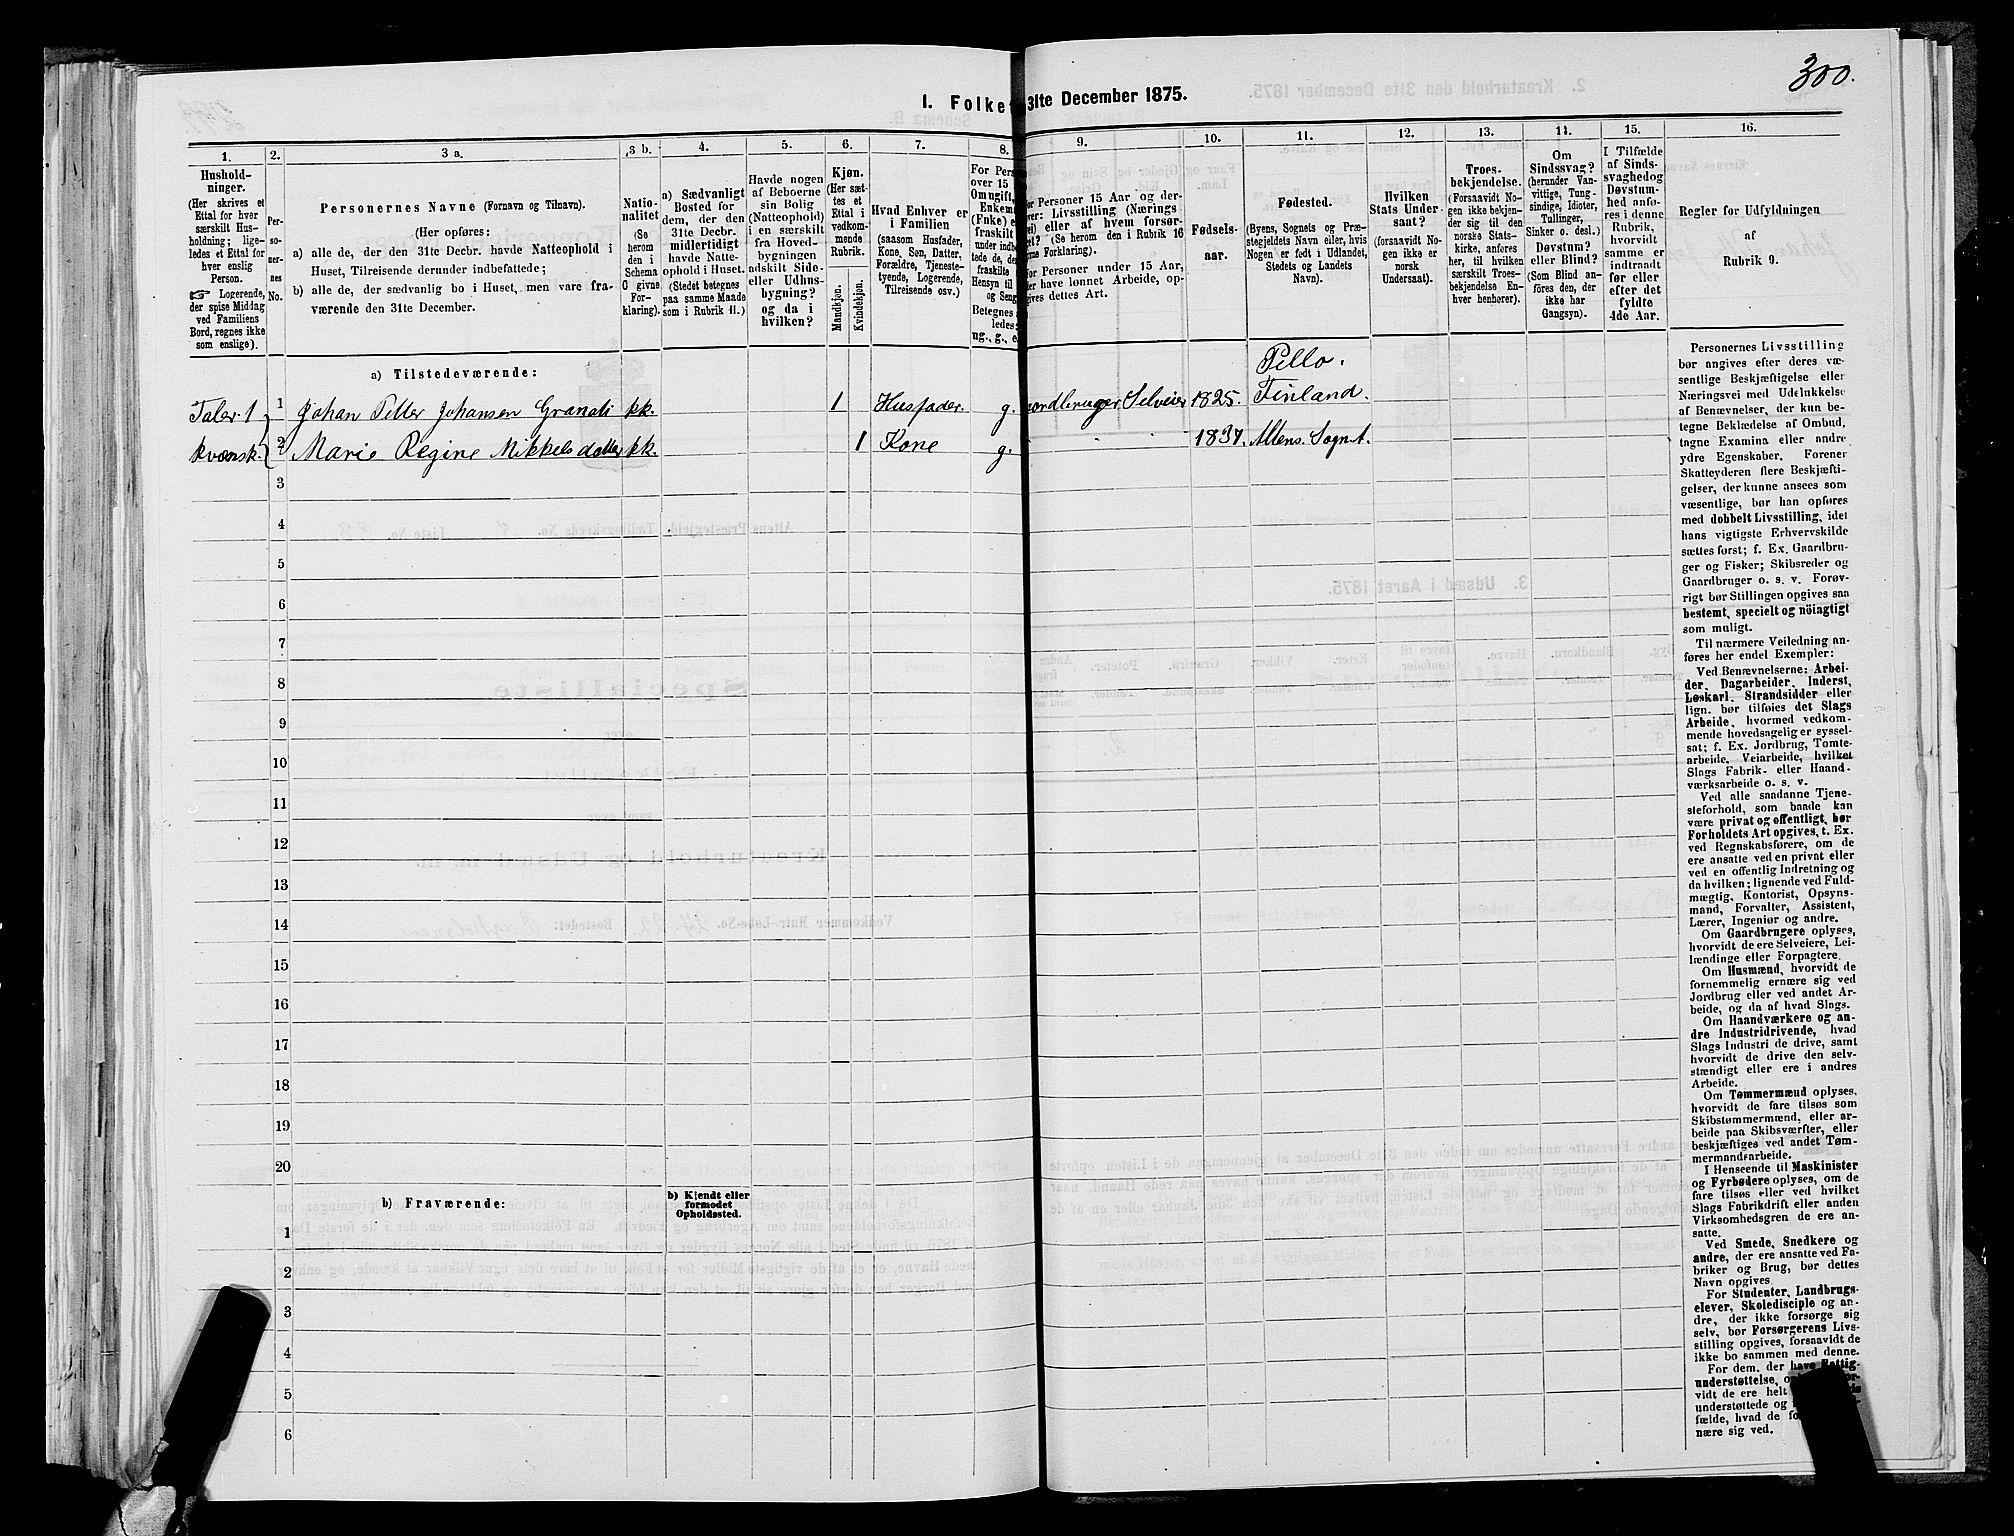 300.
I. Folket
31te December 1875.
1.
2.
3 a.
3 b.
4.
5.
6.
7.
8.
9.
10.
11.
12.
13.
14.
15.
16.
Hushold-
ninger.
(Her skrives et
Ettal for hver
særskilt Hus-
holdning; lige-
ledes et Ettal for
hver enslig
Person.
☞ Logerende,
der spise Middag
ved Familiens
Bord, regnes ikke
som enslige).
Per-
so-
ner-
nes
No.
Personernes Navne (Fornavn og Tilnavn).
(Her opføres:
a) alle de, der den 31te Decbr. havde Natteophold i
Huset, Tilreisende derunder indbefattede;
b) alle de, der sædvanlig bo i Huset, men vare fra-
værende den 31te December.
Natio-
nalitet
(Se
herom
den i
Schema
C givne
For-
klaring).
a) Sædvanligt
Bosted for
dem, der den
31te Decbr.
midlertidigt
havde Natte-
ophold i Huset.
(Stedet betegnes
paa samme Maade
som i Rubrik 11.)
Havde nogen
af Beboerne
sin Bolig
(Natteophold)
i en særskilt
fra Hoved-
bygningen
adskilt Side-
eller Udhus-
bygning?
og da i
hvilken?
Kjøn.
(Her sæt-
tes et
Ettal i
vedkom-
mende
Rubrik.
Mandkjøn.
Kvindekjøn.
Hvad Enhver er
i Familien
(saasom Husfader,
Kone, Søn, Datter,
Forældre, Tjeneste-
tyende, Logerende,
Tilreisende osv.)
For Pers
over 15
Om ugift,
Enkem
(Fnke) e
fraskilt
under indb
tede de,
fraskilte
Hensyn til
og Seng
Betegnes
ledes:
ug., g., e
For Personer 15 Aar og der-
over: Livsstilling (Nærings
vei) eller af hvem forsør-
get? (Se herom den i Rubrik 16
givne Forklaring).
For Personer under 15 Aar,
der have lønnet Arbeide, op-
gives dettes Art.
Fødsels-
aar.
Fødested.
(Byens, Sognets og Præ-
stegjeldets Navn eller, hvis
Nogen er født i Udlandet,
Stedets og Landets
Navn).
Hvilken
Stats Under-
saat?
(forsaavidt No-
gen ikke er
norsk
Undersaat).
Troes-
bekjendelse.
(Forsaavidt No-
gen ikke bekjen-
der sig til den
norske Stats-
kirke, anføres
her, til hvilken
særskilt Troes-
bekjendelse En-
hver henhører).
Om
Sindssvag?
(herunder Van-
vittige, Tung-
sindige, Idioter,
Tullinger,
Sinker o. desl.)
Døvstum?
eller Blind?
(Som Blind an-
føres den, der
ikke har
Gangsyn).
I Tilfælde
af Sinds-
svaghed og
Døvstum-
hed anfø-
res i denne
Rubrik,
hvorvidt
samme er
indtraadt
før eller
efter det
fyldte
4de Aar.
Regler for Udfyldningen
af
Rubrik 9.
a) Tilstedeværende:
Pello.
Taler 1 1 Johan Petter Johansen Granati kk. 1 Husfader. g. Jordbruger Selveier 1825. Finland.
kvænsk. 2 Marie Regine Mikkelsdatter kk. 1 Kone g. 1837. Altens Sogn A.
3
4
5
6
7
8
9
10
11
12
13
14
15
16
17
18
19
20
b) Fraværende:
b) Kjendt eller
formodet
Opholdssted.
1
2
3
4
5
6
Personernes Livsstilling
bør angives efter deres væ-
sentlige Beskjæftigelse eller
Næringsvei med Udelukkelse
af Benævnelser, der kun be-
tegne Beklædelse af Ombud,
tagne Examina eller andre
ydre Egenskaber. Forener
Skatteyderen flere Beskjæfti-
gelser, der kunne ansees som
væsentlige, bør han opføres
med dobbelt Livsstilling, idet
hans vigtigste Erhvervskilde
sættes først; f. Ex. Gaardbru-
ger og Fisker; Skibsreder og
Gaardbruger o. s. v. Forøv-
rigt bør Stillingen opgives saa
bestemt, specielt og nöiagtigt
som muligt.
Til nærmere Veiledning an-
føres her endel Exempler:
Ved Benævnelserne: Arbei-
der, Dagarbeider, Inderst,
Løskarl, Strandsidder eller
lign. bør tilføies det Slags
Arbeide, hvormed vedkom-
mende hovedsagelig er syssel-
sat; f. Ex. Jordbrug, Tomte-
arbeide, Veiarbeide, hvilket
Slags Fabrik- eller Haand-
værksarbeide o. s. v.
Ved alle saadanne Tjene-
steforhold, som baade kan
være privat og offentligt, bør
Forholdets Art opgives, t. Ex.
ved Regnskabsførere, om de
ere ansatte ved en privat eller
ved en offentlig Indretning og
da hvilken; lignende ved Fuld-
mægtig, Kontorist, Opsyns-
mand, Forvalter, Assistent,
Lærer, Ingeniør og andre.
Om Gaardbrugere oplyses,
hvorvidt de ere Selveiere, Lei-
lændinge eller Forpagtere.
Om Husmænd, hvorvidt de
fornemmelig ernære sig ved
Jordbrug eller ved andet Ar-
beide, og da af hvad Slags.
Om Haandværkere og an-
dre Industridrivende, hvad
Slags Industri de drive, samt
hvorvidt de drive den selv-
stændigt eller ere i andres
Arbeide.
Om Tømmermænd oplyses,
hvorvidt de fare tilsøs som
Skibstømmermænd, eller ar-
beide paa Skibsværfter, eller
beskjæftiges ved andet Tøm-
mermandsarbeide.
I Henseende til Maskinister
og Fyrbødere oplyses, om de
fare tilsøs eller ved hvilket
Slags Fabrikdrift eller anden
Virksomhedsgren de ere an-
satte.
Ved Smede, Snedkere og
andre, der ere ansatte ved Fa-
briker og Brug, bør dettes
Navn opgives.
For Studenter, Landbrugs-
elever, Skoledisciple og an-
dre, der ikke forsørge sig
selv, bør Forsørgerens Livs-
stilling opgives, forsaavidt de
ikke bo sammen med denne.
For dem, der have Fattig-
understøttelse, op
vidt de ere helt
understøttede og
fælde, hvad de fo
nære sig ved.